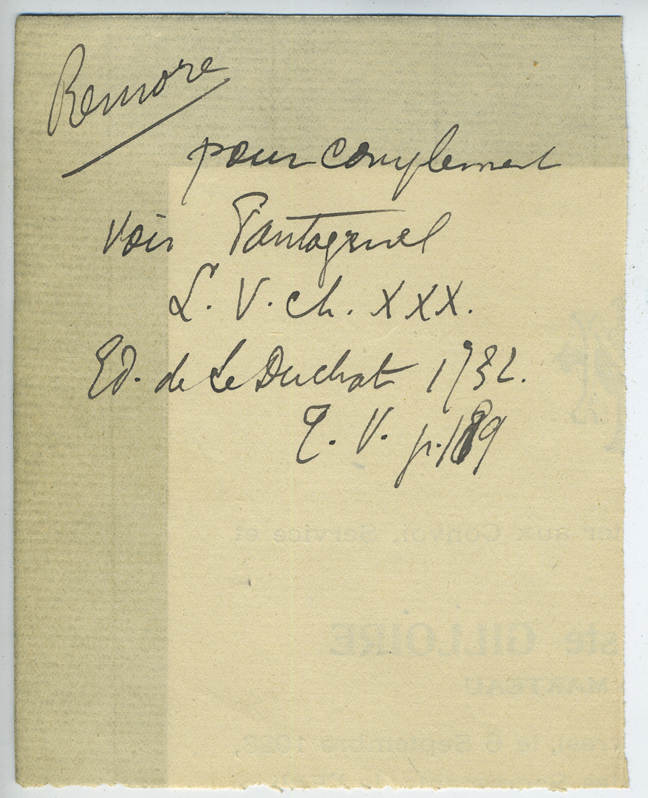 Remore
pour complement
voir Pantagruel
L. V. ch. XXX.
Ed. de Le Duchat 1732.
T. V. p. 189
ter aux Convoi, Service et
sie GILLOIRE
MARTEAU
le 6 Septembre 1926,